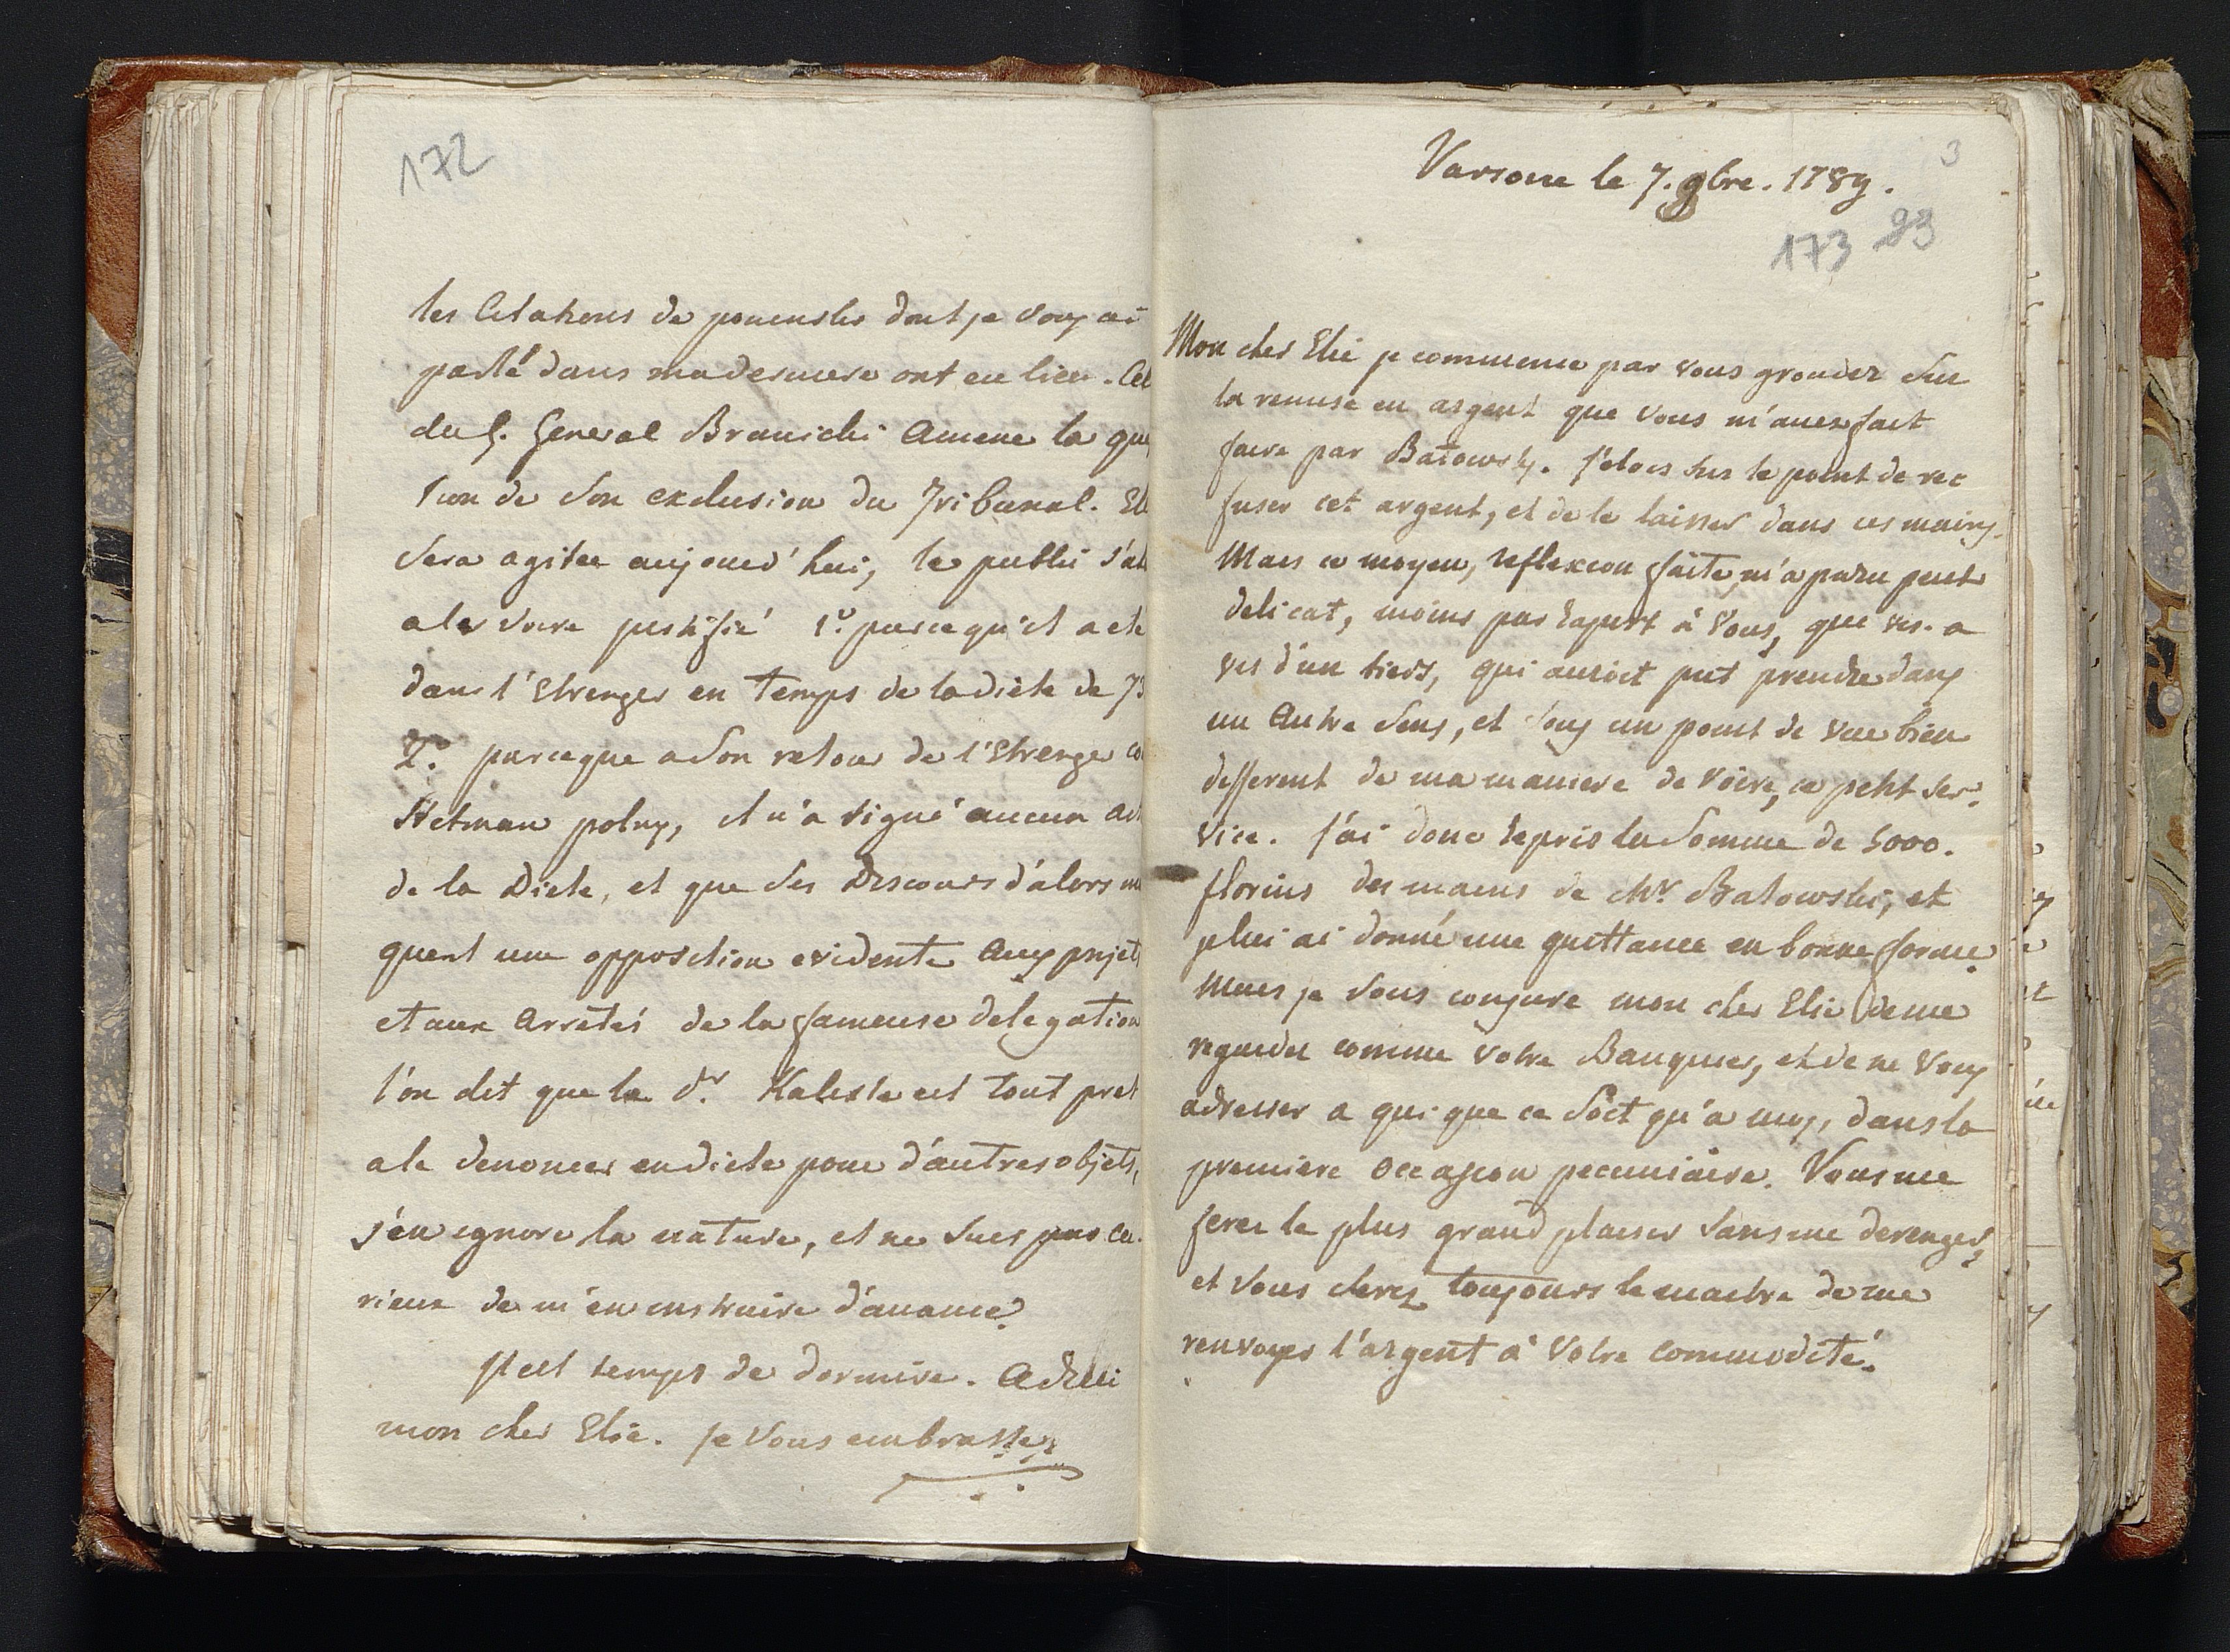 172
les Citations de poninski dont je vous ai
parlé dans ma derniere ont eu lieu. Cel
du G. General Branicki Amene la ques
tion de Son exclusion du Tribunal. Ell
Sera agitée aujourd'hui, le public s'at
a le voire justifié 1º. parcequ'il a eté
dans l'Etranger en Temps de la diete de 73
2º. parceque a Son retour de l'Etranger co
Hetman polny, il n'a signé aucun act
de la Diete, et que Ses Discours d'alors
quent une opposition evidente Aux projets
et aux Arretés de la fameuse delegation
l'on dit que le Sr. Kaleste est tout pret
a le denoncer en diete pour d'autres objets,
j'en ignore la nature, et ne Suis pas cu-
rieux de m'en instruire d'avance.
Il est temps de dormire. Adieu
mon cher Elie. Je Vous embrasse
3
Varsovie le 7. 9bre. 1789.
173 93
Mon cher Elie je commence par vous gronder Sur
la remise en argent que Vous m'avez fait
faire par Batowsky. J'étois sur le point de re
fuser cet argent, et de le laisser dans ces mains.
Mais ce moyen, reflexion faite, m'a paru peut
delicat, moins par raport à Vous, que vis-a
vis d'un tiers, qui auroit put prendre dans
un Autre Sens, et Sous un point de vue bien
different de ma maniere de voire, ce petit ser-
vice. J'ai donc repris la Somme de 5000.
florins des mains de Mr. Batowski, et
je lui ai donné une quittance en bonne forme.
Mais je Vous conjure mon cher Elie de me
regarder comme Votre Banquier, et de ne Vous
adresser a qui que ce Soit qu'a moy, dans la
premiere Occasion pecuniaire. Vous me
ferez le plus grand plaisir Sans me deranger,
et Vous Serez toujours le maitre de me
renvoyer l'argent à Votre Commodité.